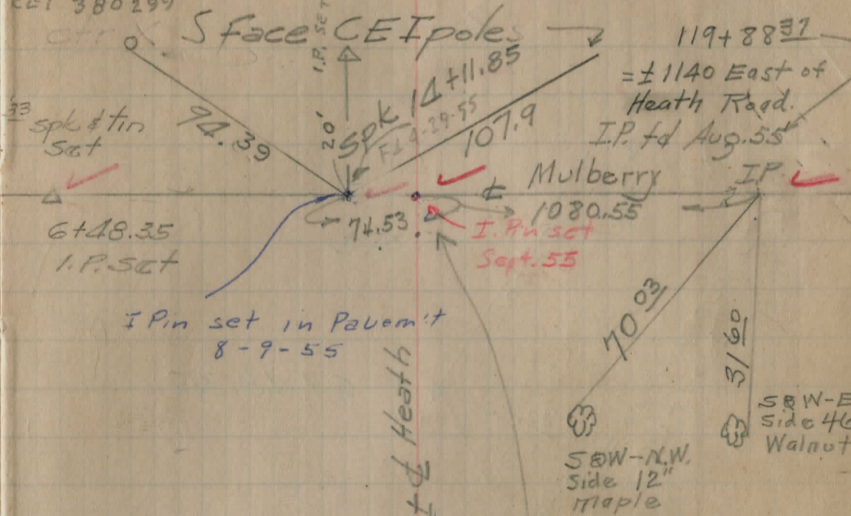 CEI 380299
S Face CEI poles
I.P. SET
119+88 37
= ± 1140 East of
Heath Road.
I.P. fd Aug. 55
spk & tin
Set
94.39
20'
Spk 14+11.85
Fd 9-29-55
107.9
Mulberry
I.P.
6+48.35
I.P. Set
74.53
1080.55
I. Pin set
Sept. 55
I Pin set in Pavem't
8-9-55
Heath
70 03
31 60
S@W-N.W.
Side 12"
Maple
S@W-E
Side 46
Walnut